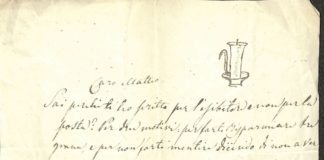 Caro Matteo
Sai perchè ti ho scritto per l'esibitore e non per la
posta? Per due motivi, per farti risparmiare tre
grana; e per non farti mentire dicendo di non a